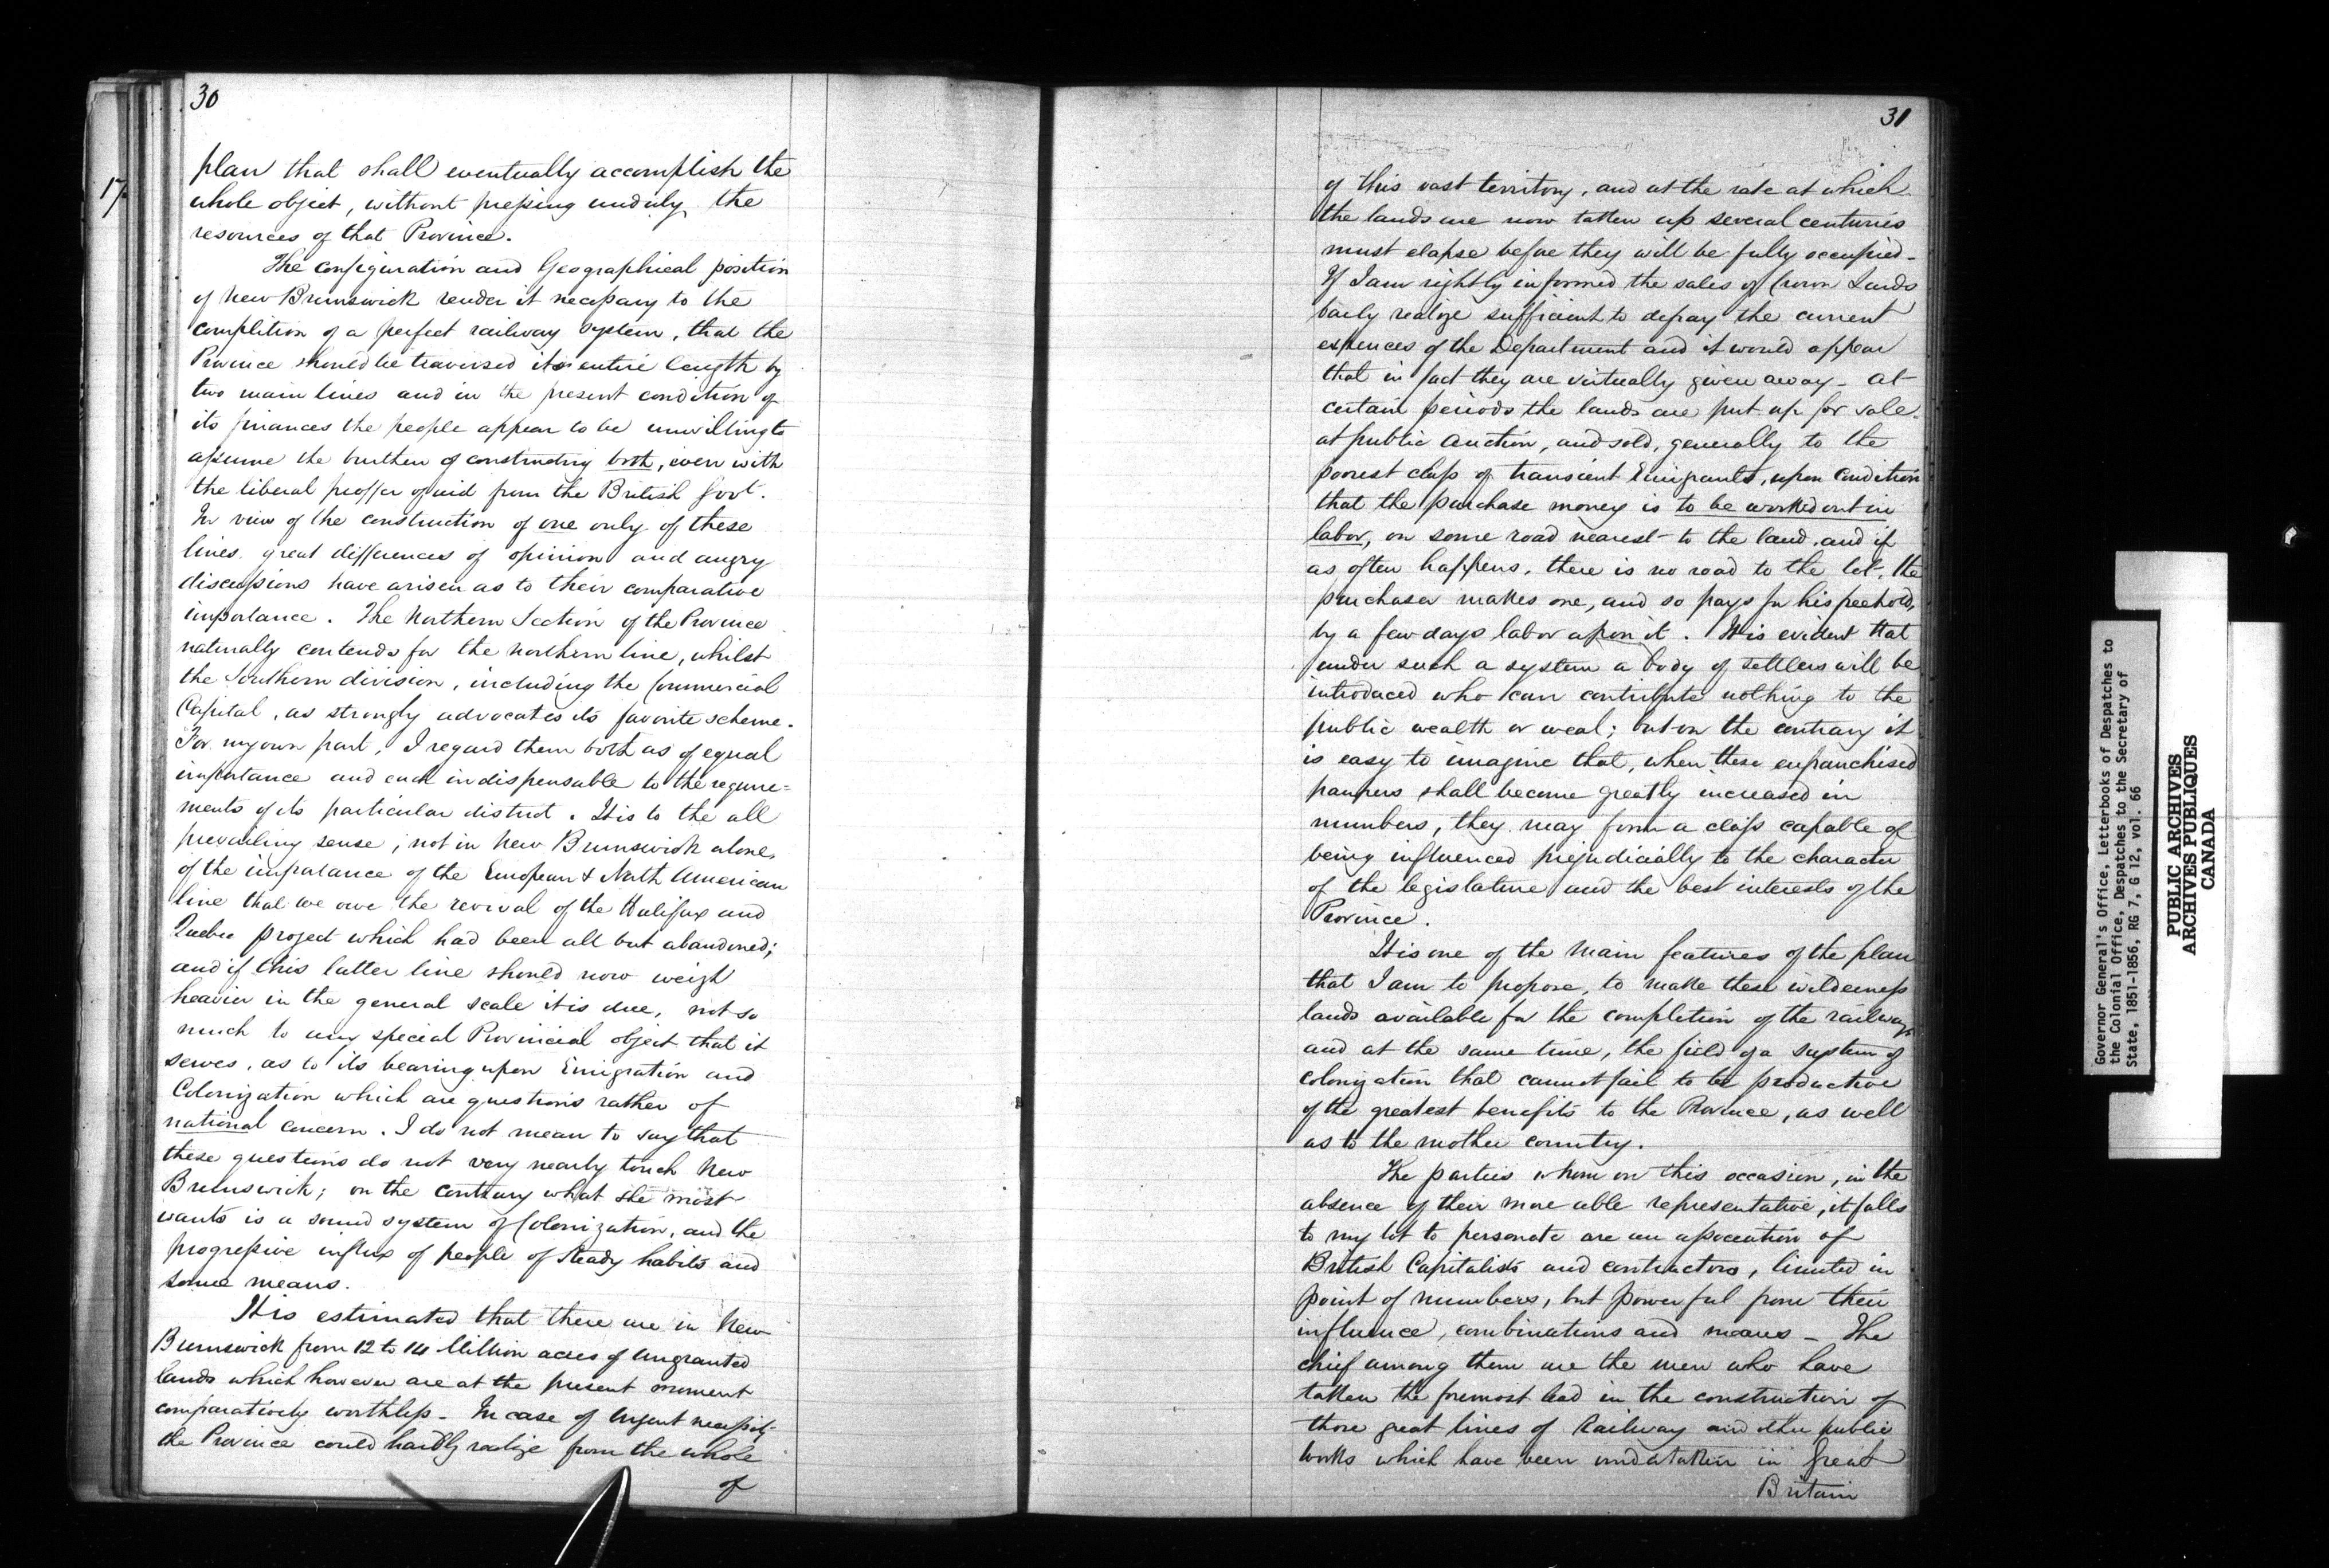 30
17
plan that shall eventually accomplish the
whole object, without pressing unduly the
resources of that Province.
The configuration and Geographical position
of New Brunswick render it necessary to the
complition of a perfect railway system, that the
Province should be traversed its entire length by
two main lines and in the present condition of
its finances the people appear to be unwilling to
assume the burthen of constructing both, even with
the liberal proffer of aid from the British Govt.
In view of the construction of one only of these
lines great differences of opinion and angry
discussions have arisen as to their comparative
importance. The Northern Section of the Province
naturally contends for the northern line, whilst
the Southern division, including the Commercial
Capital, as strongly advocates its favorite scheme.
For my own part, I regard them both as of equal
importance and each indispensable to the require=
ments of its particular district. It is to the all
prevailing sense, not in New Brunswick alone,
of the importance of the European & North American
line that we owe the revival of the Halifax and
Quebec project which had been all but abandoned;
and if this latter line should now weigh
heavier in the general scale it is due, not so
much to any special Provincial object that it
serves, as to its bearing upon Emigration and
Colonization which are questions rather of
national concern. I do not mean to say that
these questions do not very nearly touch New
Brunswick; on the contrary what she most
wants is a sound system of Colonization, and the
progressive influx of people of Steady habits and
some means.
It is estimated that there are in New
Brunswick from 12 to 14 Million acres of Ungranted
lands which however are at the present moment
comparatively worthless - In case of Urgent necessity
the Province could hardly realize from the whole
of
31
of this vast territory, and at the rate at which
the lands are now taken up several centuries
must elapse before they will be fully occupied -
If I am rightly informed the sales of Crown Lands
barely realize sufficient to defray the current
expences of the Department and it would appear
that in fact they are virtually given away - at
certain periods the lands are put up for sale
at public Auction, and sold, generally to the
poorest class of transient Emigrants, upon condition
that the purchase money is to be worked out in
labor, on some road nearest to the land, and if
as often happens, there is no road to the lot, the
purchaser makes one, and so pays for his freehold,
by a few days labor upon it. It is evident that
under such a system a body of settlers will be
introduced who can contribute nothing to the
public wealth or weal; but on the contrary it
is easy to imagine that, when these enfranchised
paupers shall become greatly increased in
numbers, they may form a class capable of
being influenced prejudicially to the character
of the legislature and the best interests of the
Province.
It is one of the main features of the plan
that I am to propose, to make these wilderness
lands available for the completion of the railways
and at the same time, the field of a system of
colonization that cannot fail to be productive
of the greatest benefits to the Province, as well
as to the mother country.
The parties whom on this occasion, in the
absence of their more able representative, it falls
to my lot to personate are an association of
British Capitalists and contractors, limited in
point of numbers, but powerful from their
influence, combinations and means - The
chief among them are the men who have
taken the foremost lead in the construction of
those great lines of Railway and other public
works which have been undertaken in Great
Britain
Governor General's Office, Letterbooks of Despatches to
the Colonial Office, Despatches to the Secretary of
State, 1851-1856, RG 7, G 12, vol. 66
PUBLIC ARCHIVES
ARCHIVES PUBLIQUES
CANADA